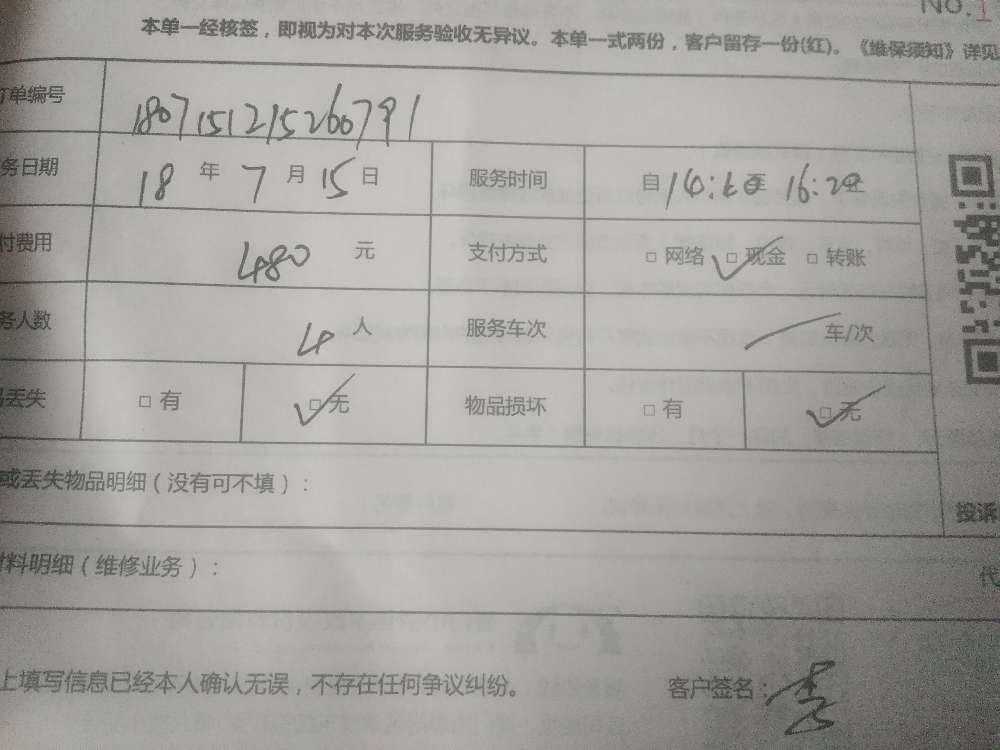 No.1
本单一经核签，即视为对本次服务验收无异议。本单一式两份，客户留存一份(红)。《维保须知》详见
订单编号 180715121526679 1
务日期 18 年 7 月 15 日 服务时间 自 至 16:20
付费用 480 元 支付方式 □ 网络 ☑ 现金 □ 转账
务人数 4 人 服务车次 车/次
丢失 □ 有 ☑ 无 物品损坏 □ 有 ☑ 无
或丢失物品明细（没有可不填）：
投诉
料明细（维修业务）：
代
上填写信息已经本人确认无误，不存在任何争议纠纷。 客户签名：